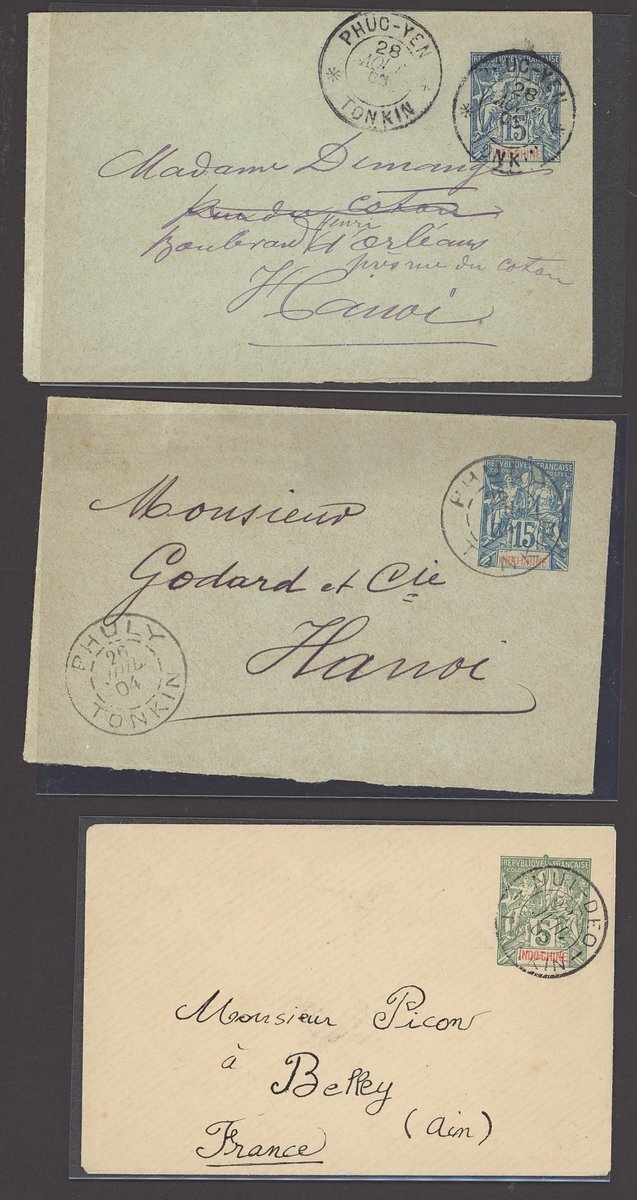 PHUC-YEN
28
AOUT
TONKIN
REPUBLIQUE FRANÇAISE
COLONIES POSTES
15
INDO-CHINE
28
Madame
Rue du Coton
Boulevard Henri d'Orléans
près rue du Coton
Hanoi
REPUBLIQUE FRANÇAISE
COLONIES POSTES
15
INDO-CHINE
Monsieur
Godard et Cie
Hanoi
PHULY
26
JUIL
04
TONKIN
REPUBLIQUE FRANÇAISE
5
INDO-CHINE
NUI-DEO
Monsieur Picon
à
Belley
(Ain)
France